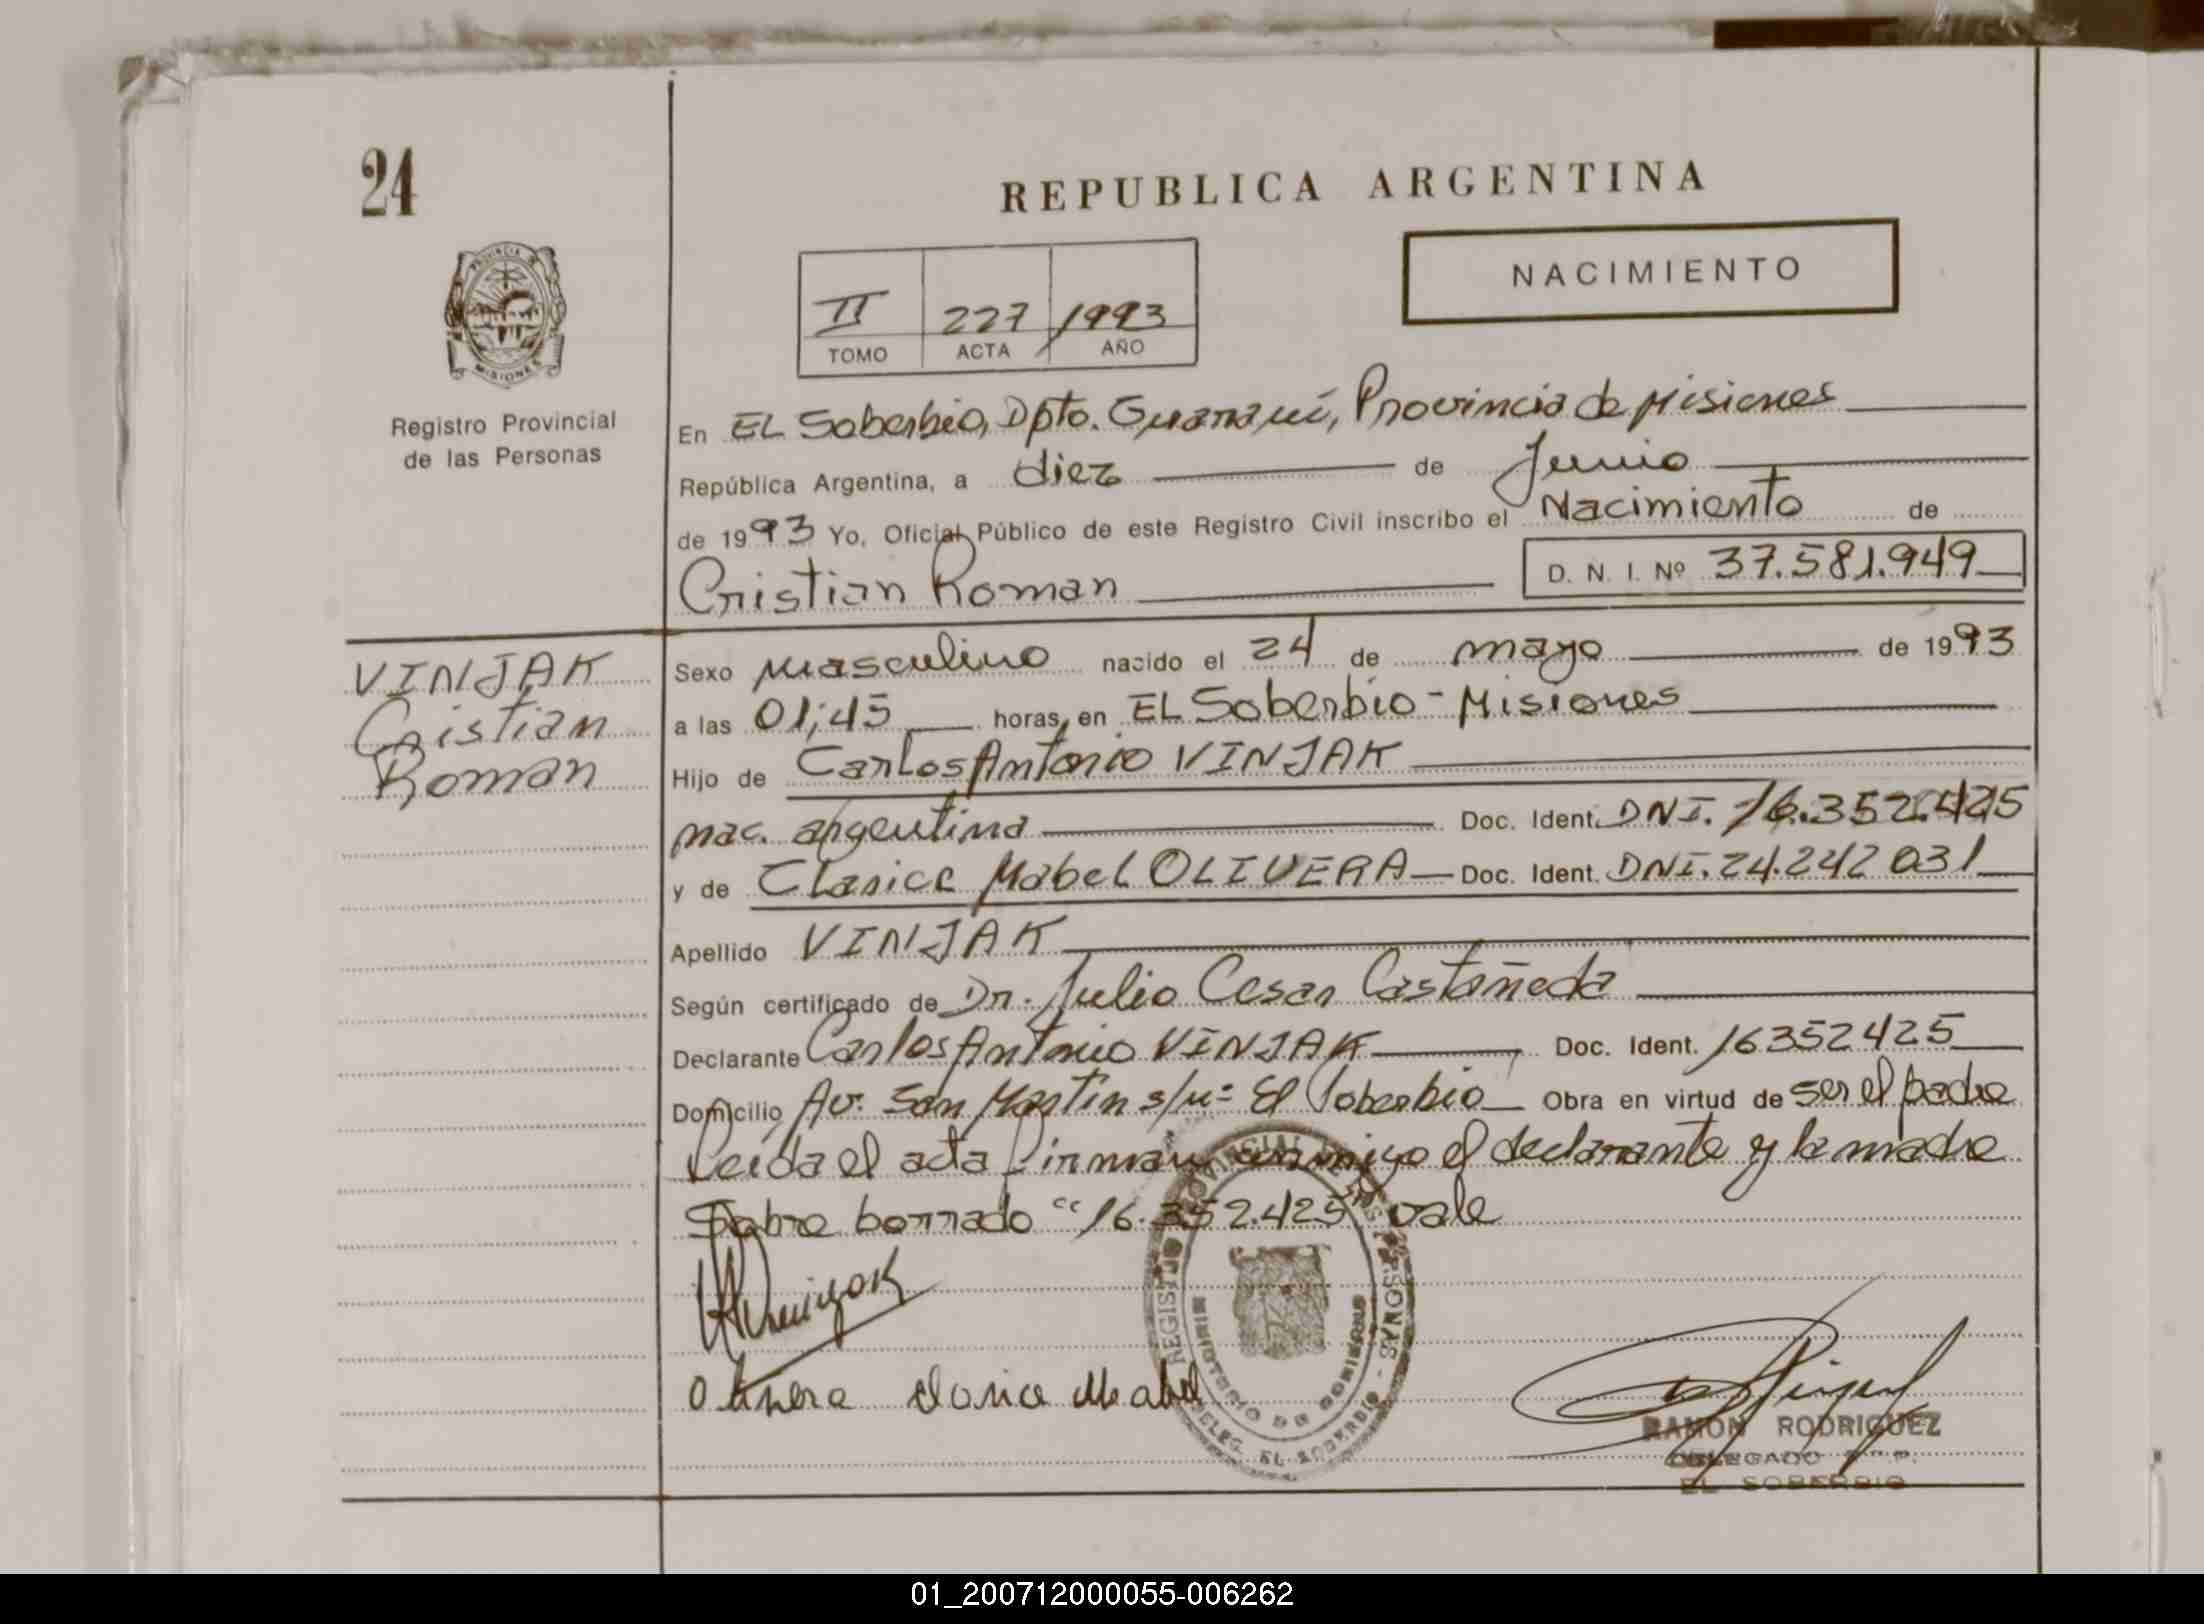 24
REPUBLICA ARGENTINA
NACIMIENTO
II 227 1993
TOMO ACTA AÑO
PROVINCIA DE
MISIONES
Registro Provincial
de las Personas
En EL Soberbio, Dpto. Guaraní, Provincia de Misiones
República Argentina, a diez de Junio
de 1993 Yo, Oficial Público de este Registro Civil inscribo el Nacimiento de
Cristian Roman D. N. I. Nº 37.581.949
VINJAK
Cristian
Roman
Sexo masculino nacido el 24 de mayo de 1993
a las 01;45 horas, en EL Soberbio - Misiones
Hijo de Carlos Antonio VINJAK
nac. argentina Doc. Ident. DNI. 16.352.425
y de Clarice Mabel OLIVERA Doc. Ident. DNI. 24.242 031
Apellido VINJAK
Según certificado de Dr. Julio Cesar Castañeda
Declarante Carlos Antonio VINJAK Doc. Ident. 16352425
Domicilio Av. San Martin s/nº El Soberbio Obra en virtud de ser el padre
Leida el acta firman conmigo el declarante y la madre
Sobre borrado "16.352.425" vale
REGISTRO PROVINCIAL DE LAS PERSONAS
DELEG. EL SOBERBIO
Olivera Mabel
RAMON RODRIGUEZ
DELEGADO
EL SOBERBIO
01_200712000055-006262